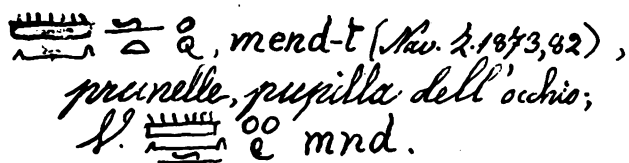 , mend-t (Nav. Z. 1873, 82),
prunelle, pupilla dell'occhio;
V. mnd.